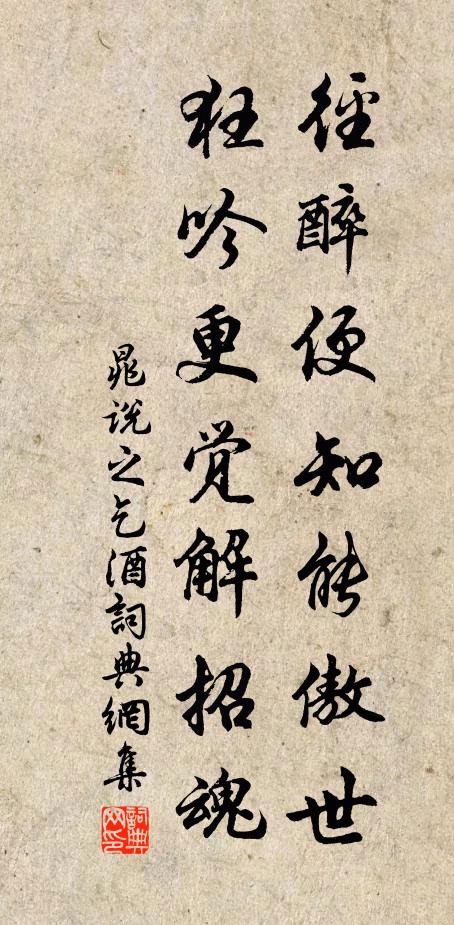 徑醉便知能傲世
狂吟更觉解招魂
晁说之乞酒詞典網集
詞典网印